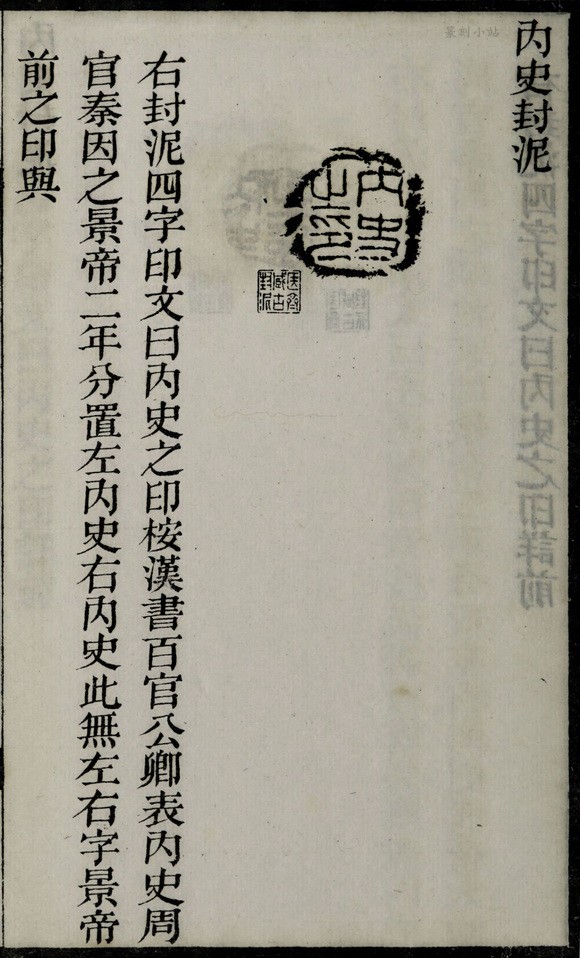 篆刻小站
内史封泥
内史之印
右封泥四字印文曰内史之印桉漢書百官公卿表内史周
官秦因之景帝二年分置左内史右内史此無左右字景帝
前之印與